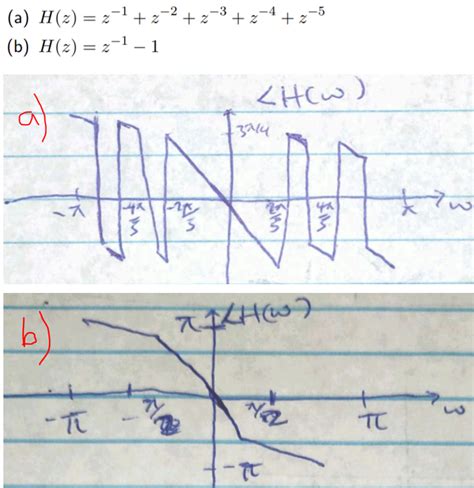 (a) H(z) = z⁻¹ + z⁻² + z⁻³ + z⁻⁴ + z⁻⁵
(b) H(z) = z⁻¹ − 1
a)
∠H(ω)
3π/4
-π -4π/5 -2π/5 2π/5 4π/5 π ω
b)
π ∠H(ω)
-π -π/2 π/2 π ω
-π